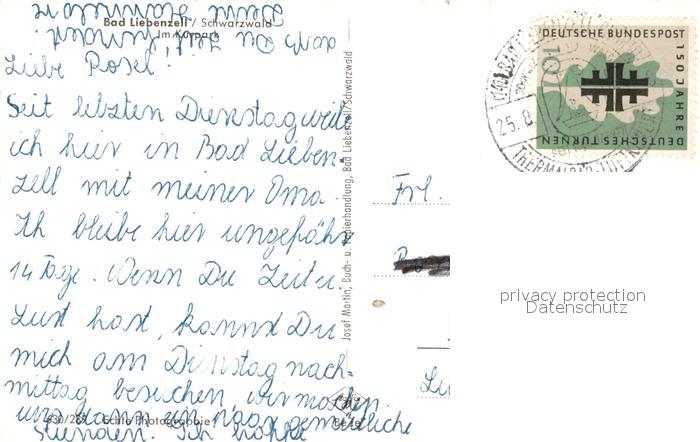 Bad Liebenzell / Schwarzwald
Im Kurpark
Liebe Rosel!
Seit letzten Dienstag weile
ich hier in Bad Lieben-
zell mit meiner Oma.
Ich bleibe hier ungefähr
14 Tage. Wenn Du Zeit u.
Lust hast, kannst Du
mich am Dienstag nach=
mittag besuchen wir machen
uns dann ein paar gemütliche
Stunden. Ich hoffe
daß Du Zeit findest
Deine Hannelore
Echte Photographie
Josef Martin, Buch- u. Papierhandlung, Bad Liebenzell/Schwarzwald
Frl.
DEUTSCHE BUNDESPOST
150 JAHRE
DEUTSCHES TURNEN
10
25.8
privacy protection
Datenschutz